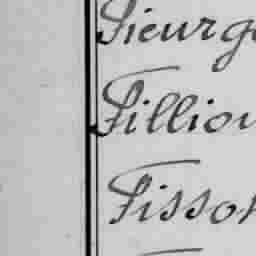 Tieurge
Tillion
Tissot